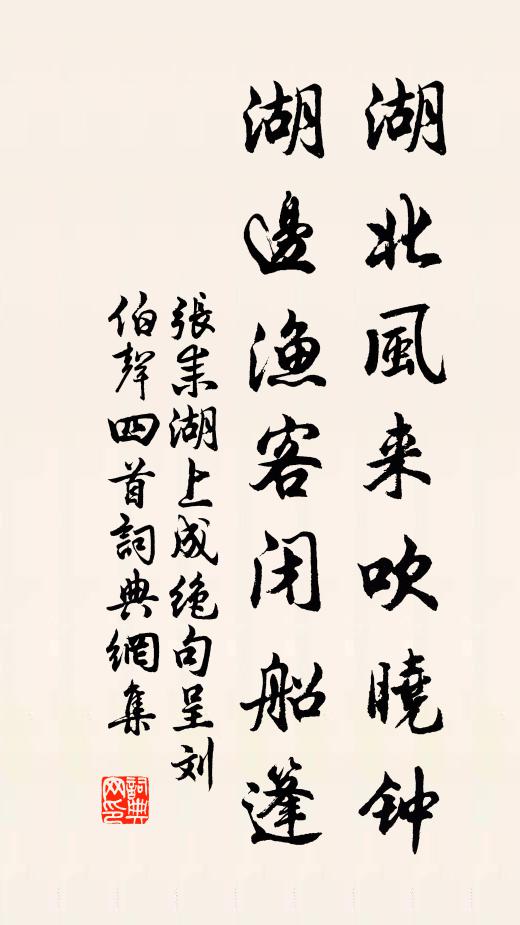 湖北風来吹曉钟
湖邊漁客闭船篷
張耒湖上成绝句呈刘
伯聲四首詞典網集
詞典
网印